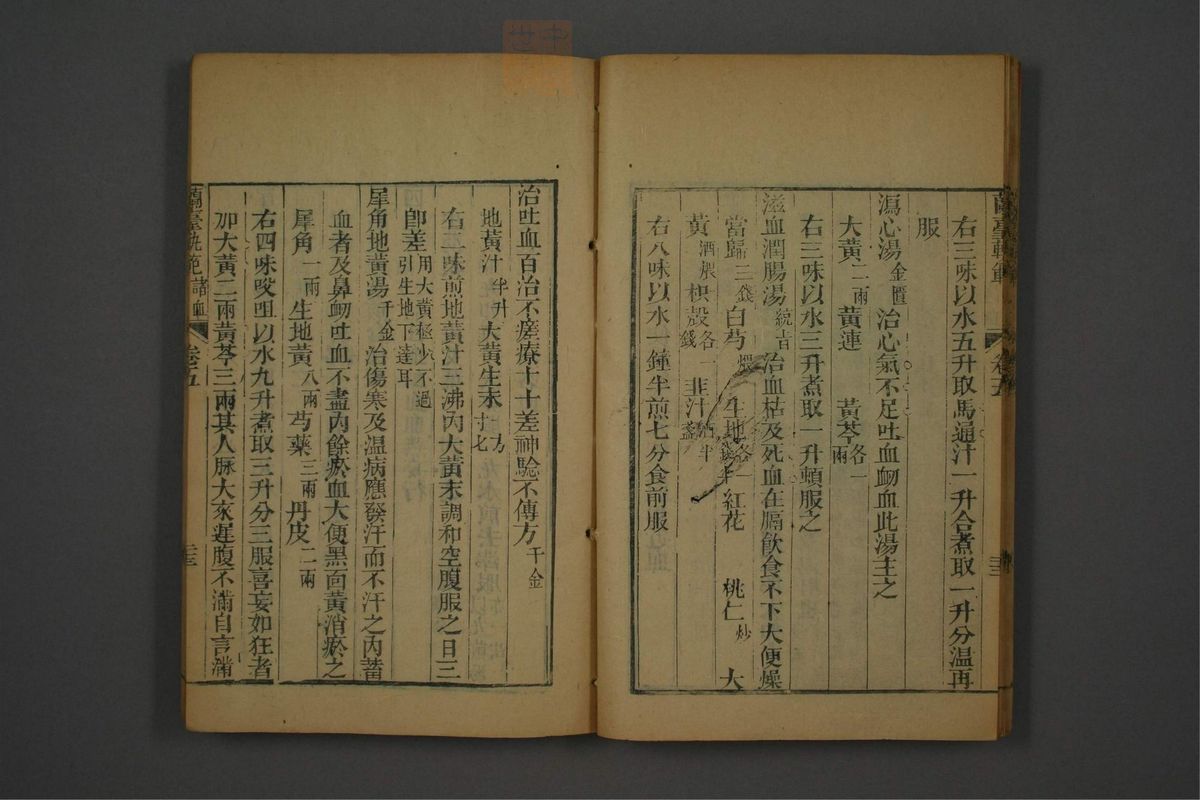 右三味以水五升取馬通汁一升合煮取一升分温再
服
瀉心湯金匱 治心氣不足吐血衂血此湯主之
大黄二兩 黄連 黄芩各一兩
右三味以水三升煮取一升頓服之
滋血潤腸湯統旨 治血枯及死血在膈飲食不下大便燥
當歸三錢 白芍煨 生地各一錢半 紅花 桃仁炒 大
黄酒煨 枳殻各一錢 韭汁酒半盞
右八味以水一鍾半煎七分食前服
蘭臺軌範 卷五
治吐血百治不瘥療十十差神騐不傳方千金
地黄汁半升 大黄生末方寸七
右二味煎地黄汁三沸内大黄末調和空腹服之日三
即差用大黄極少不過引生地下達耳
犀角地黄湯千金 治傷寒及温病應發汗而不汗之内蓄
血者及鼻衂吐血不盡内餘瘀血大便黑面黄消瘀之
犀角一兩 生地黄八兩 芍藥三兩 丹皮二兩
右四味㕮咀以水九升煮取三升分三服喜妄如狂者
加大黄二兩黄芩三兩其人脉大來遲腹不滿自言滿
蘭臺軌範 諸血 卷五